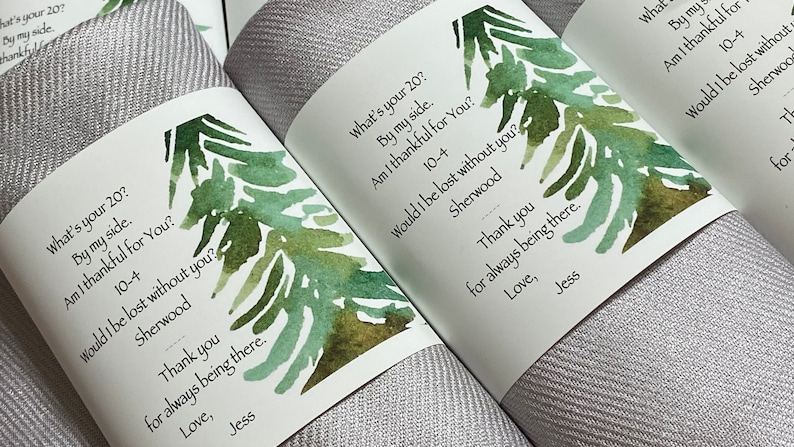 What's your 20?
By my side.
thankful for
What's your 20?
By my side.
Am I thankful for You?
10-4
Would I be lost without you?
Sherwood
-----
Thank you
for always being there.
Love, Jess
What's your 20?
By my side.
Am I thankful for You?
10-4
Would I be lost without you?
Sherwood
-----
Thank you
for always being there.
Love, Jess
What's your
By my side.
Am I thankful for
10-4
Would I be lost without
Sherwood
Thank
for always
Love,